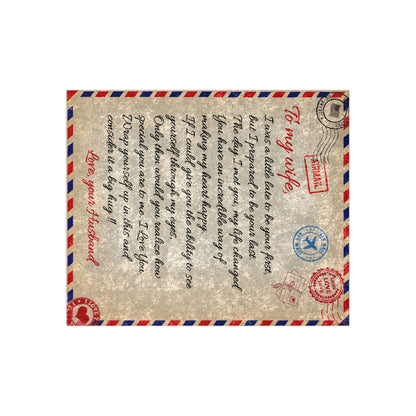 To my wife,
I was a little late to be your first,
but I prepared to be your last.
The day I met you, my life changed
You have an incredible way of
making my heart happy.
If I could give you the ability to see
yourself through my eyes,
Only then would you realize how
special you are to me. I Love You
Wrap yourself up in this and
consider it a big hug !!
Love, your Husband
AIRMAIL